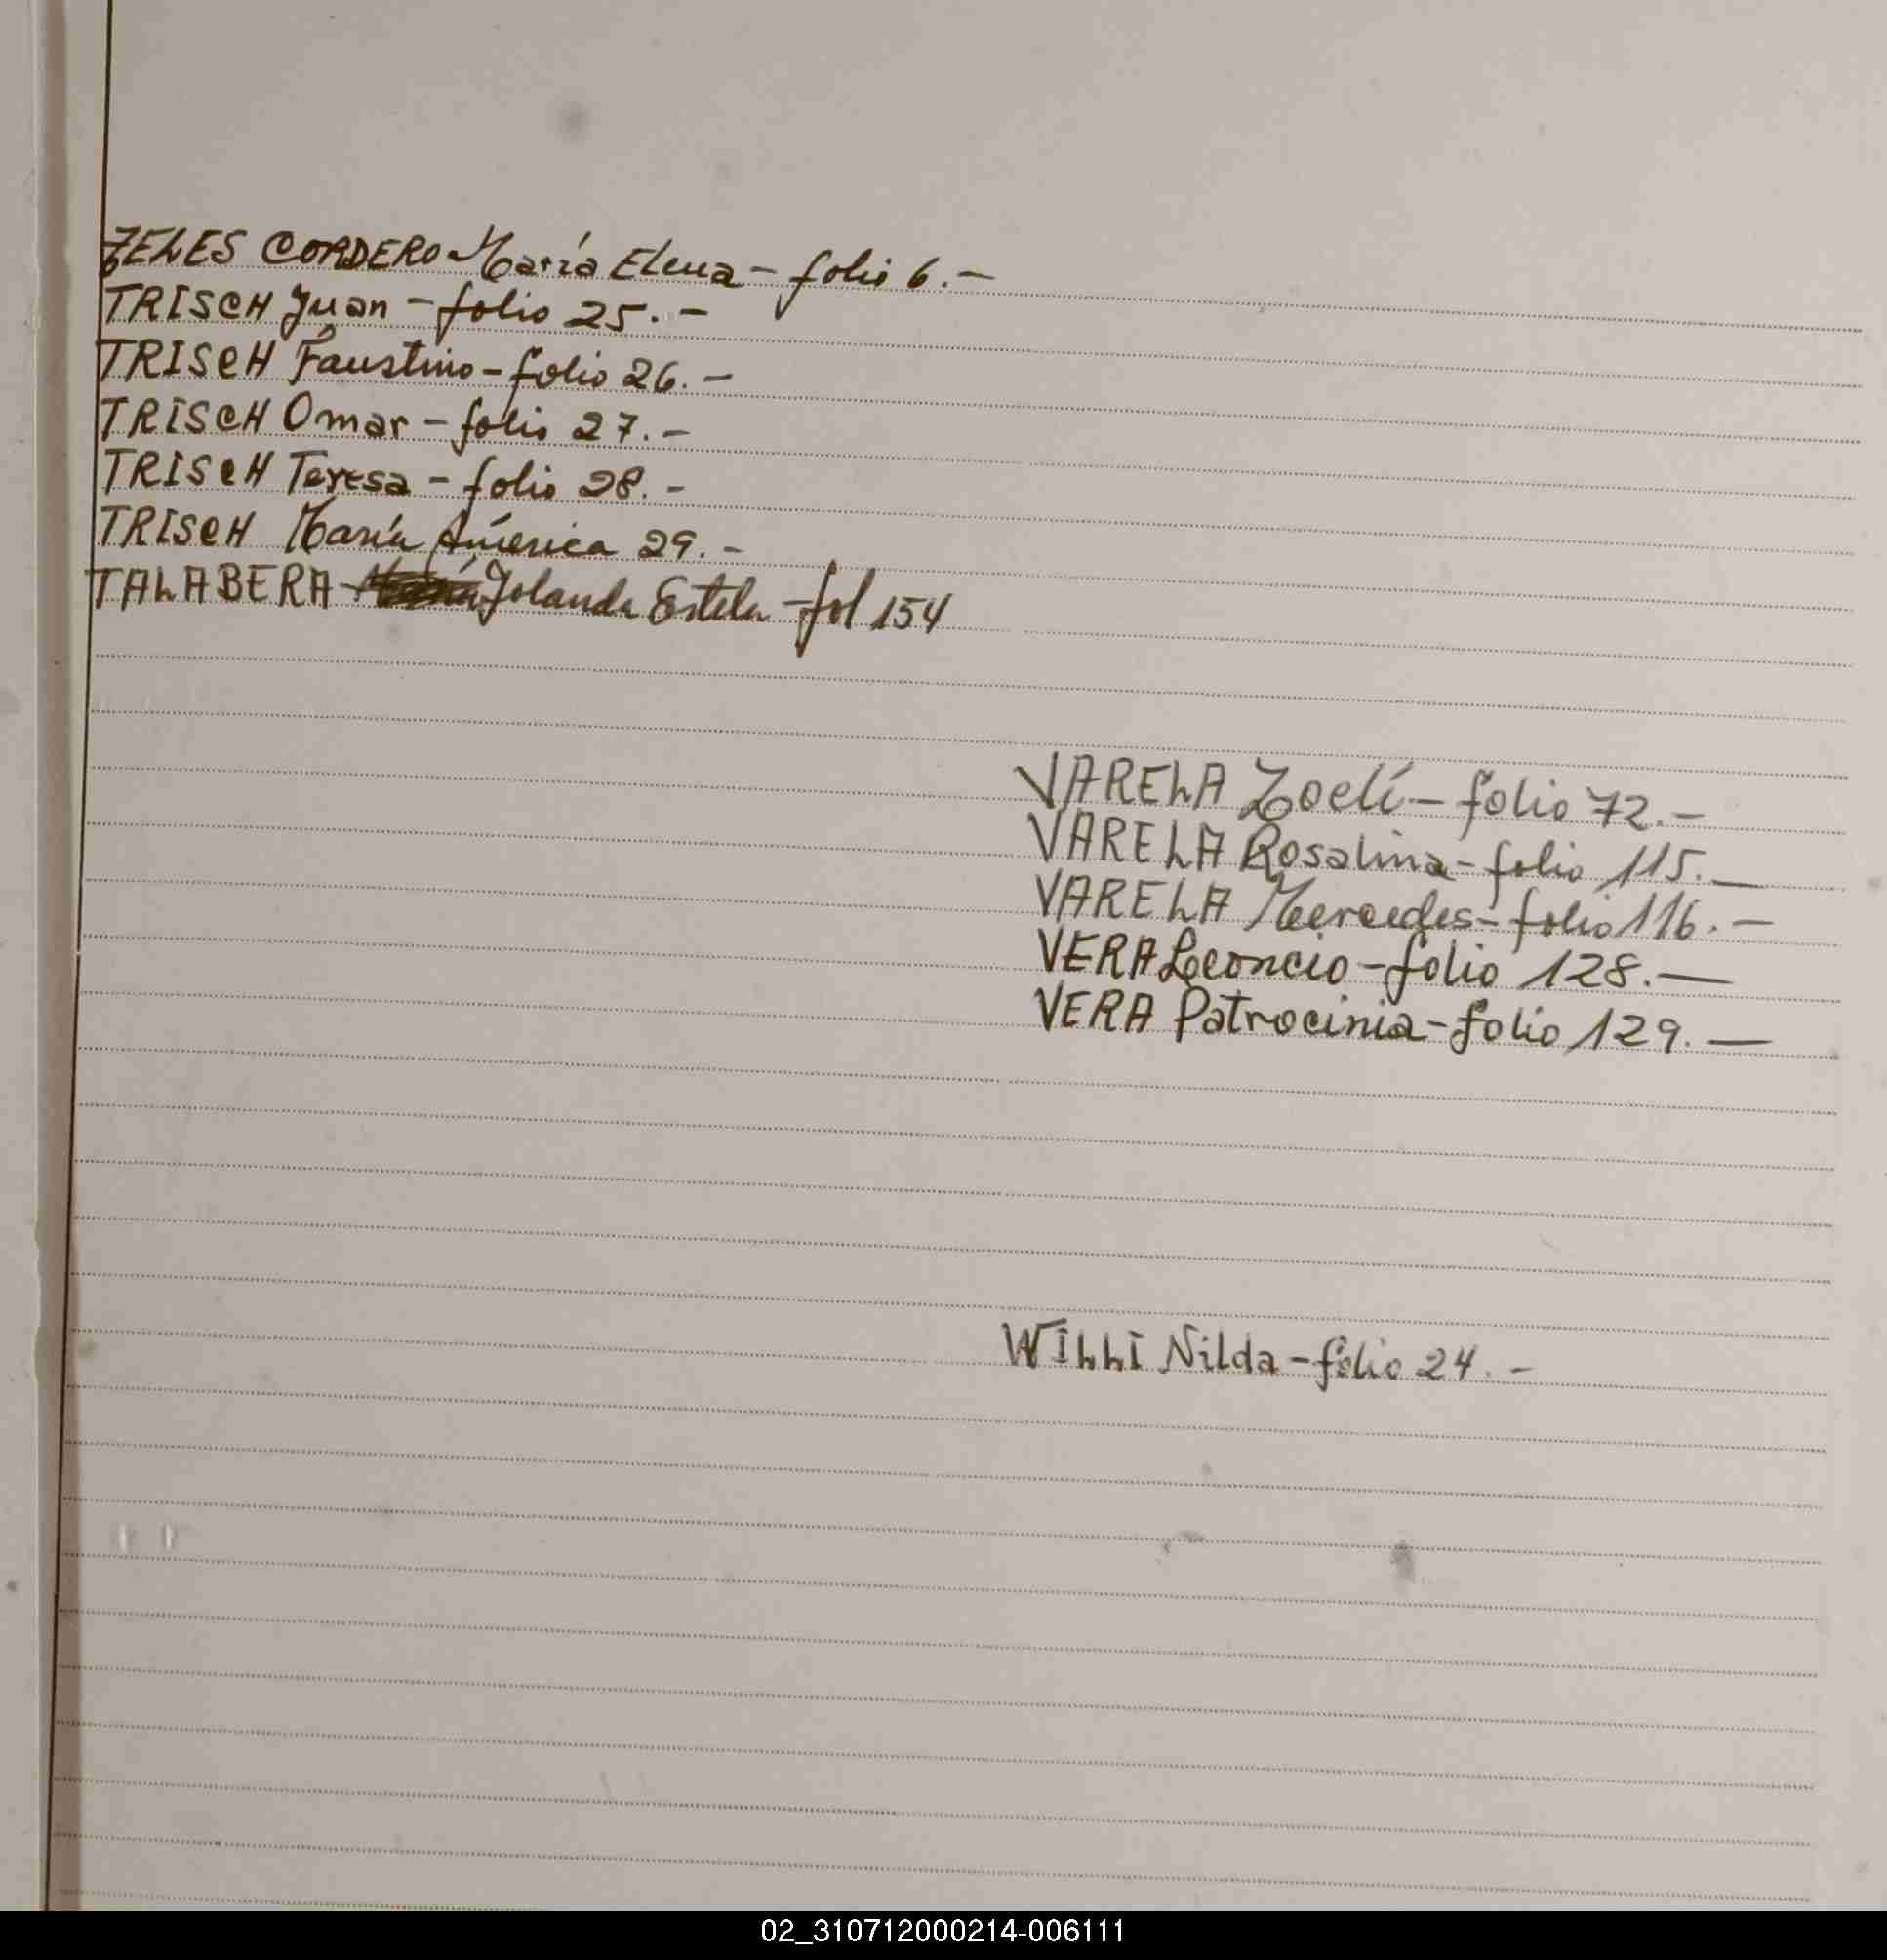 TELES CORDERO María Elena - folio 6. -
TRISCH Juan - folio 25. -
TRISCH Faustino - folio 26. -
TRISCH Omar - folio 27. -
TRISCH Teresa - folio 28. -
TRISCH María América 29. -
TALABERA Yolanda Estela - fol 154
VARELA Zoelí - folio 72. -
VARELA Rosalina - folio 115. -
VARELA Mercedes - folio 116. -
VERA Leoncio - folio 128. -
VERA Patrocinia - folio 129. -
WILLI Nilda - folio 24. -
02_310712000214-006111